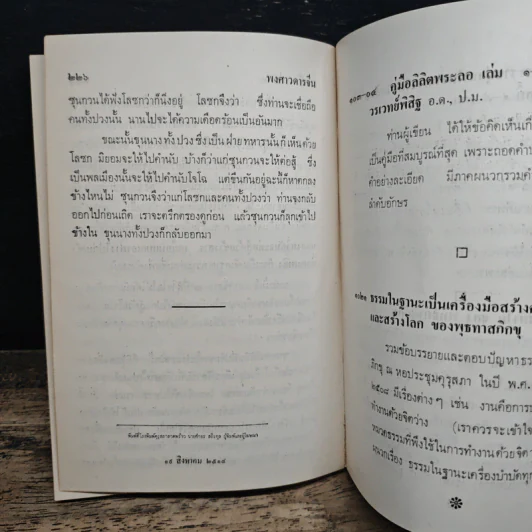 ๒๒๖
พงศาวดารจีน
ซุนกวนได้ฟังโลซกว่าก็นิ่งอยู่ โลซกจึงว่า ซึ่งท่านจะเชื่อถือ
คนทั้งปวงนั้น นานไปจะได้ความเดือดร้อนเป็นอันมาก
ขณะนั้นขุนนางทั้งปวงซึ่งเป็นฝ่ายทหารนั้นก็เห็นด้วย
โลซก มิยอมจะให้ไปคำนับ บ้างก็ว่าแก่ซุนกวนจะให้ต่อสู้ ซึ่ง
เป็นพลเมืองนั้นจะให้ไปคำนับโจโฉ แต่ขืนกันอยู่ฉะนี้ก็หาตกลง
ข้างไหนไม่ ซุนกวนจึงว่าแก่โลซกและคนทั้งปวงว่า ท่านจงกลับ
ออกไปก่อนเถิด เราจะตรึกตรองดูก่อน แล้วซุนกวนก็ลุกเข้าไป
ข้างใน ขุนนางทั้งปวงก็กลับออกมา
๑๙ สิงหาคม ๒๕๑๔
๑๐๓-๐๔ คู่มือลิลิตพระลอ เล่ม ๑
วรเวทย์พิสิฐ อ.ด., ป.ม.
ท่านผู้เขียน ได้ให้ข้อคิดเห็นเกี่
เป็นคู่มือที่สมบูรณ์ที่สุด เพราะถอดคำ
คำอย่างละเอียด มีภาคผนวกรวมคำ
ลำดับอักษร
ธรรมในฐานะเป็นเครื่องมือสร้างค
และสร้างโลก ของพุทธทาสภิกขุ
รวมข้อบรรยายและตอบปัญหาธร
ภิกขุ ณ หอประชุมคุรุสภา ในปี พ.ศ.
๒๕๐๘ มีเรื่องต่างๆ เช่น งานคือการ
ทำงานด้วยจิตว่าง (เราควรจะเข้าใจ
หมวดธรรมที่พึงใช้ในการทำงานด้วยจิต
ผนวกเรื่อง ธรรมในฐานะเครื่องบำบัดทุก